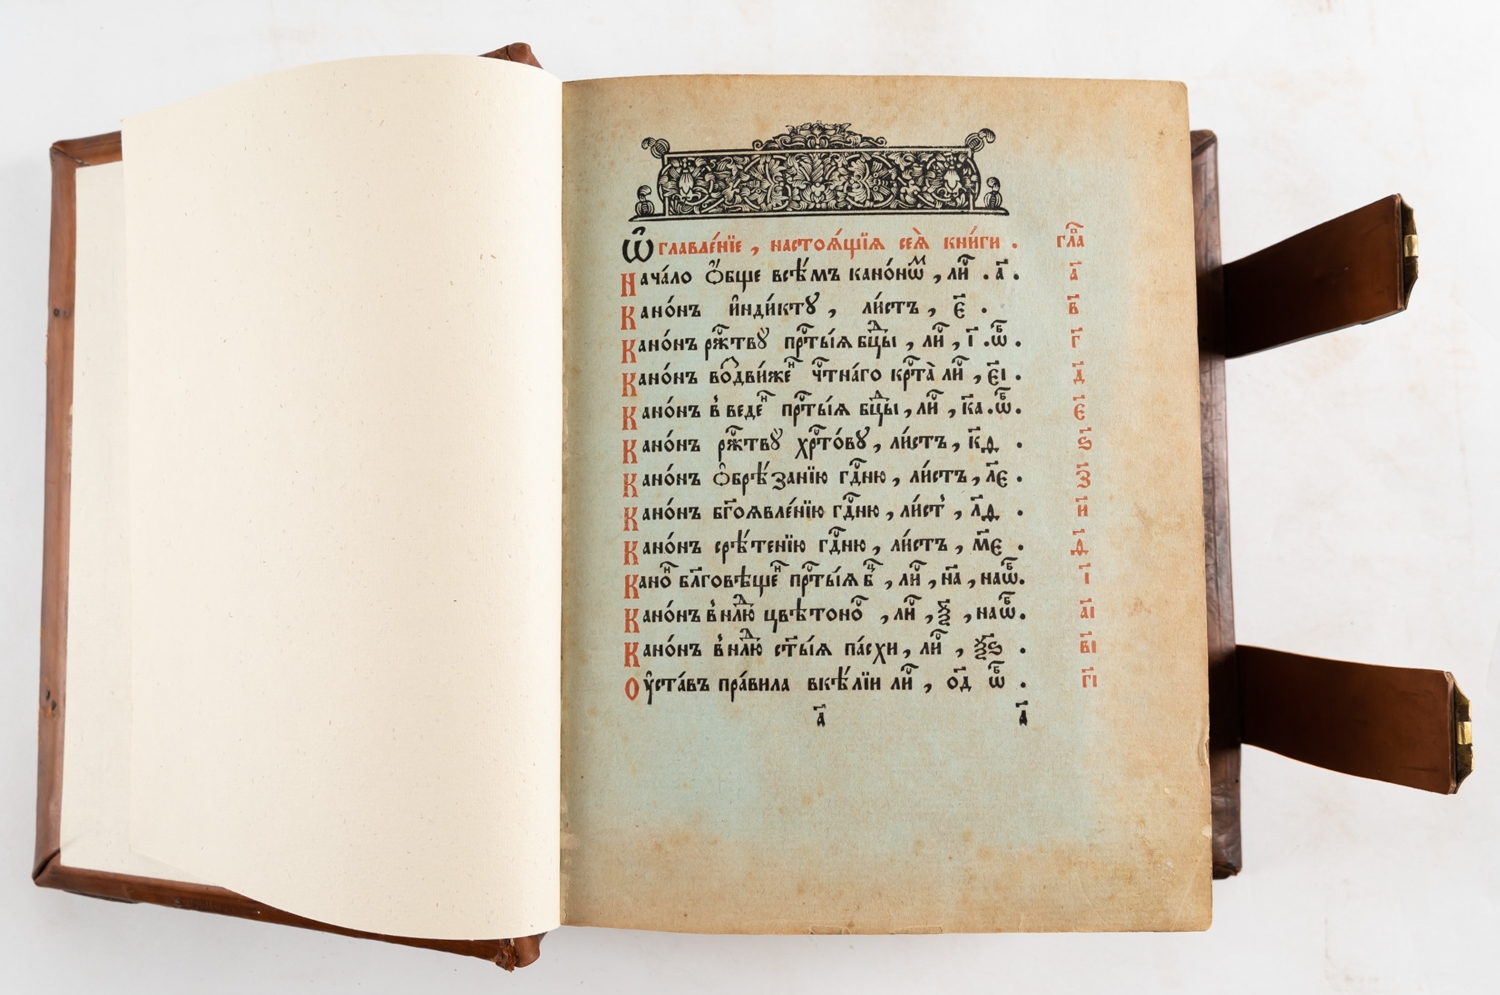 Ѡ҆главле́нїе , настоѧ́щїѧ сеѧ̀ кни́ги . гла̑
Нача́ло ѻ҆́бще всѣ́мъ кано́нѡⷨ , лиⷭ҇ . а҃ . а҃
Кано́нъ и҆нди́ктꙋ , ли́стъ , є҃ . в҃
Кано́нъ рж҇твꙋ̀ прⷭ҇ты́ѧ бцⷣы , лиⷭ҇ , і҃ . ѡ҆ⷠ . г҃
Кано́нъ воⷥдви́жеⷩ чⷭ҇тна́го крⷭ҇та̀ лиⷭ҇ , є҃і . д҃
Кано́нъ в̾веде́ⷩ прⷭ҇ты́ѧ бцⷣы , лиⷭ҇ , к҃а . ѡ҆ⷠ . є҃
Кано́нъ рж҇твꙋ̀ хрⷭ҇то́вꙋ , ли́стъ , к҃ѳ . ѕ҃
Кано́нъ ѻ҆брѣ́занїю гдⷭ҇ню , ли́стъ , л҃є . з҃
Кано́нъ бг҃оѧвле́нїю гдⷭ҇ню , ли́ст̾ , л҃ѳ . и҃
Кано́нъ срѣ́тенїю гдⷭ҇ню , ли́стъ , м҃є . ѳ҃
Кано́ⷩ бл҃говѣще́ⷩ прⷭ҇ты́ѧ бⷰ , лиⷭ҇ , н҃а , наѡ҆ⷠ . і҃
Кано́нъ в̾нлⷣю цвѣтоно́ⷭ , лиⷭ҇ , ѯ҃ , наѡ҆ⷠ . а҃і
Кано́нъ в̾нлⷣю ст҃ы́ѧ па́схи , лиⷭ҇ , ѯ҃ѕ . в҃і
Оу҆ста́въ пра́вила вке́лїи лиⷭ҇ , о҃д ѡ҆ⷠ . г҃і
а҃ а҃